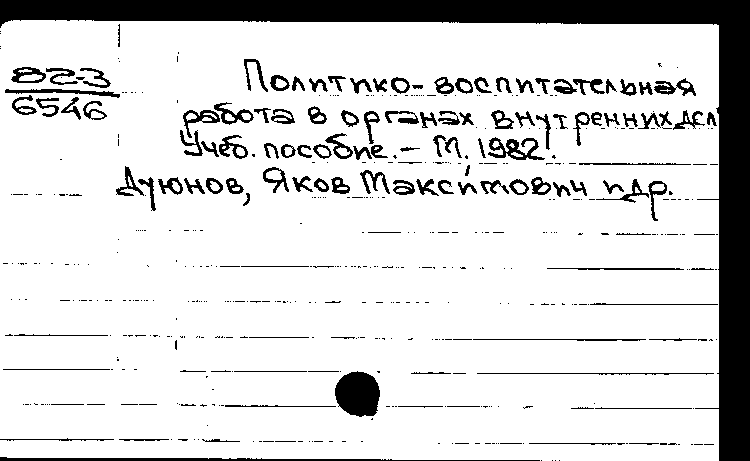 82-3
6546
Политико-воспитательная
работа в органах внутренних дел
Учеб. пособие. – М., 1982.
Дуюнов, Яков Максимович и др.